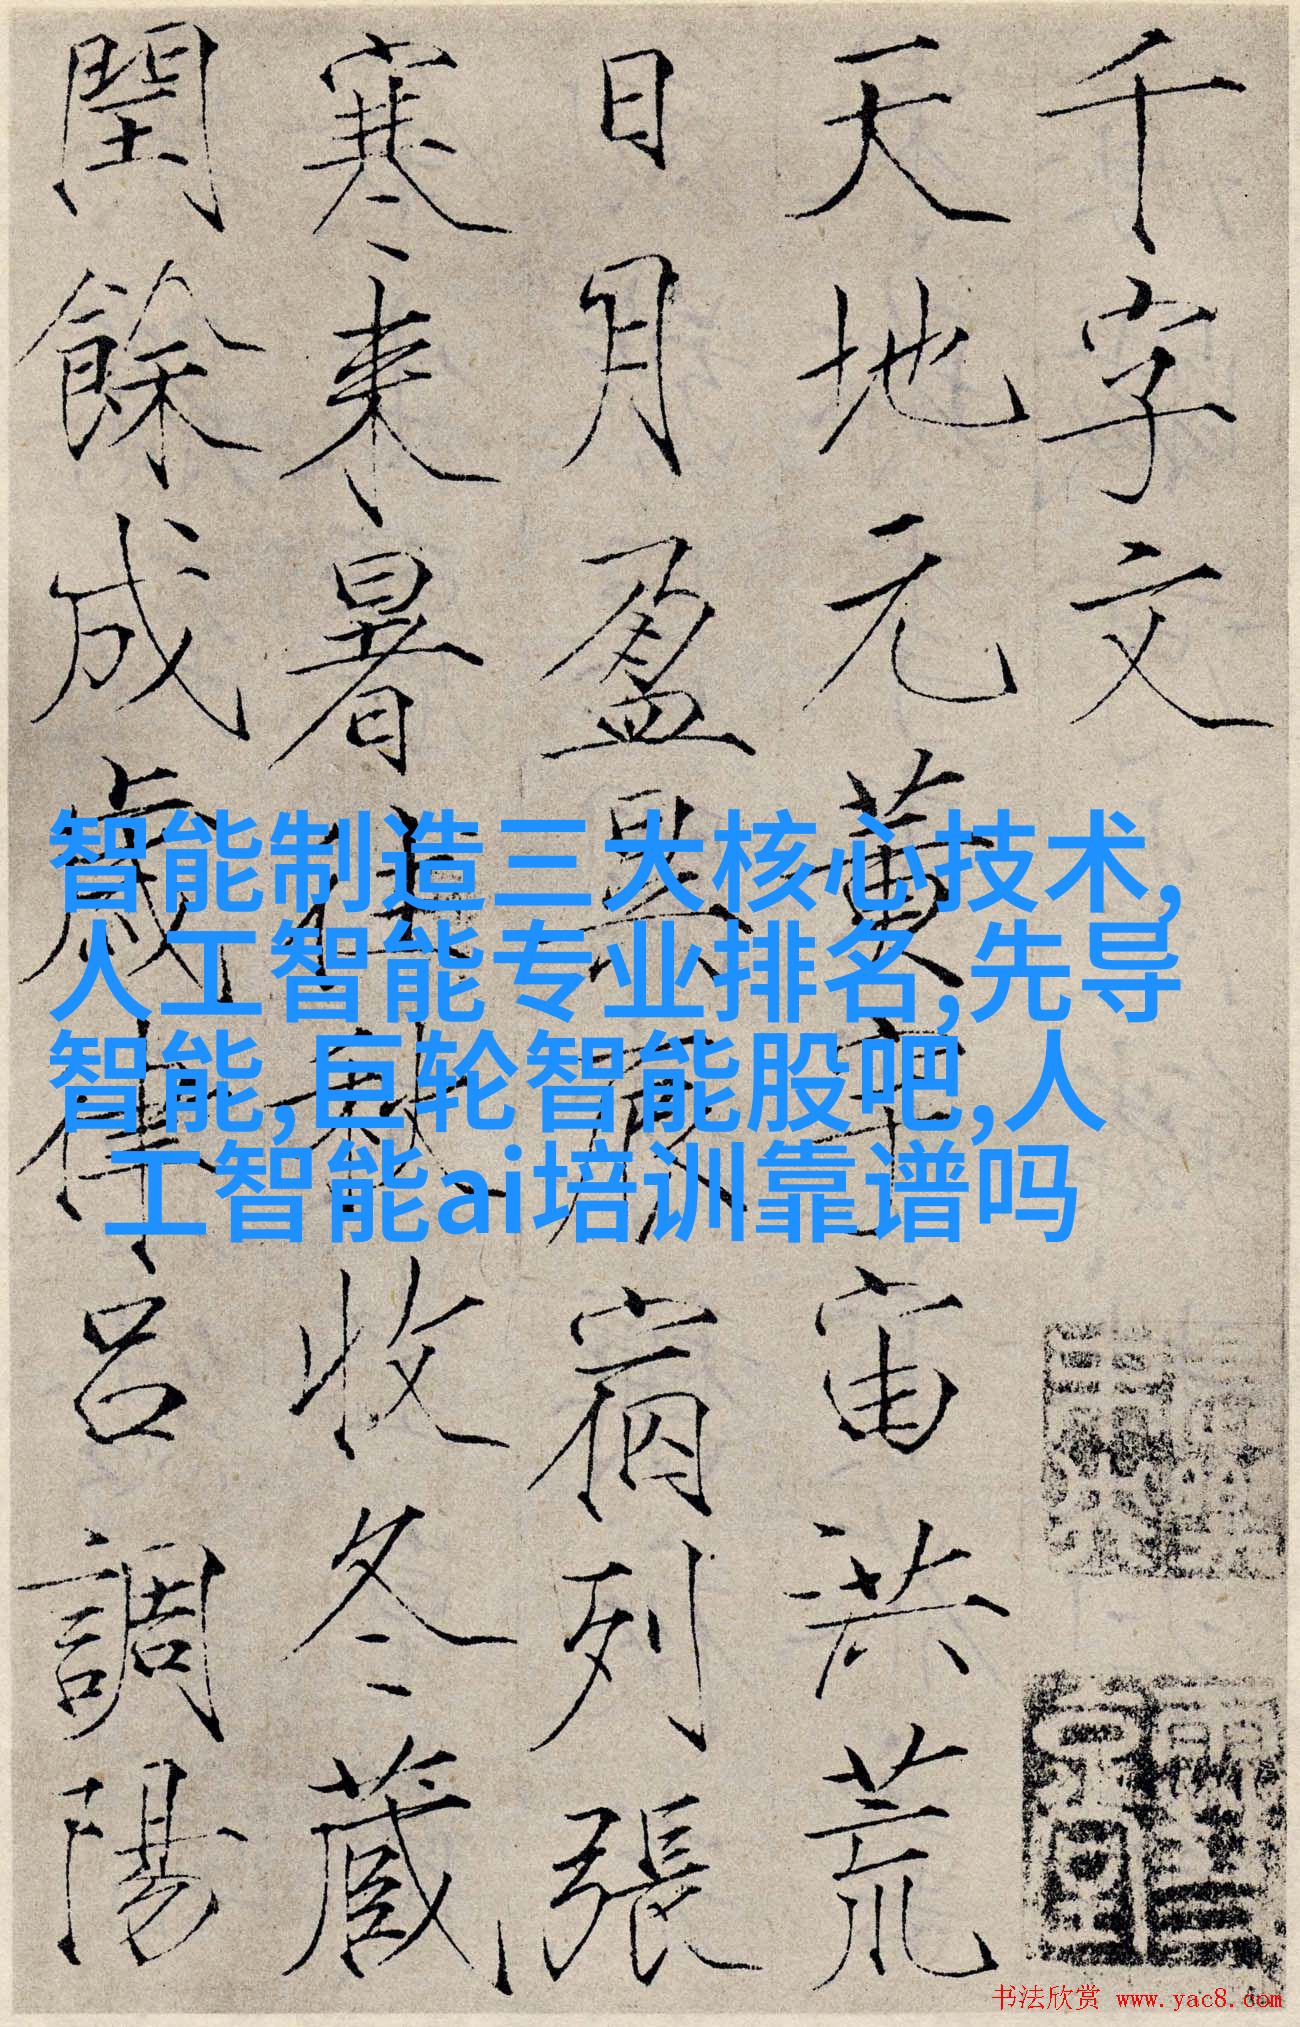 千字文
天地元黄宇宙洪荒
日月盈昃辰宿列張
寒来暑往秋收冬蔵
閏餘成歲律吕調陽
智能制造三大核心技术,
人工智能专业排名,先导
智能,巨轮智能股吧,人
工智能ai培训靠谱吗
书法欣赏 www.yac8.com